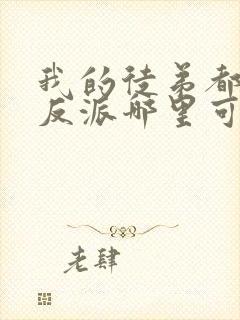 我的徒弟都
反派哪里可
老肆